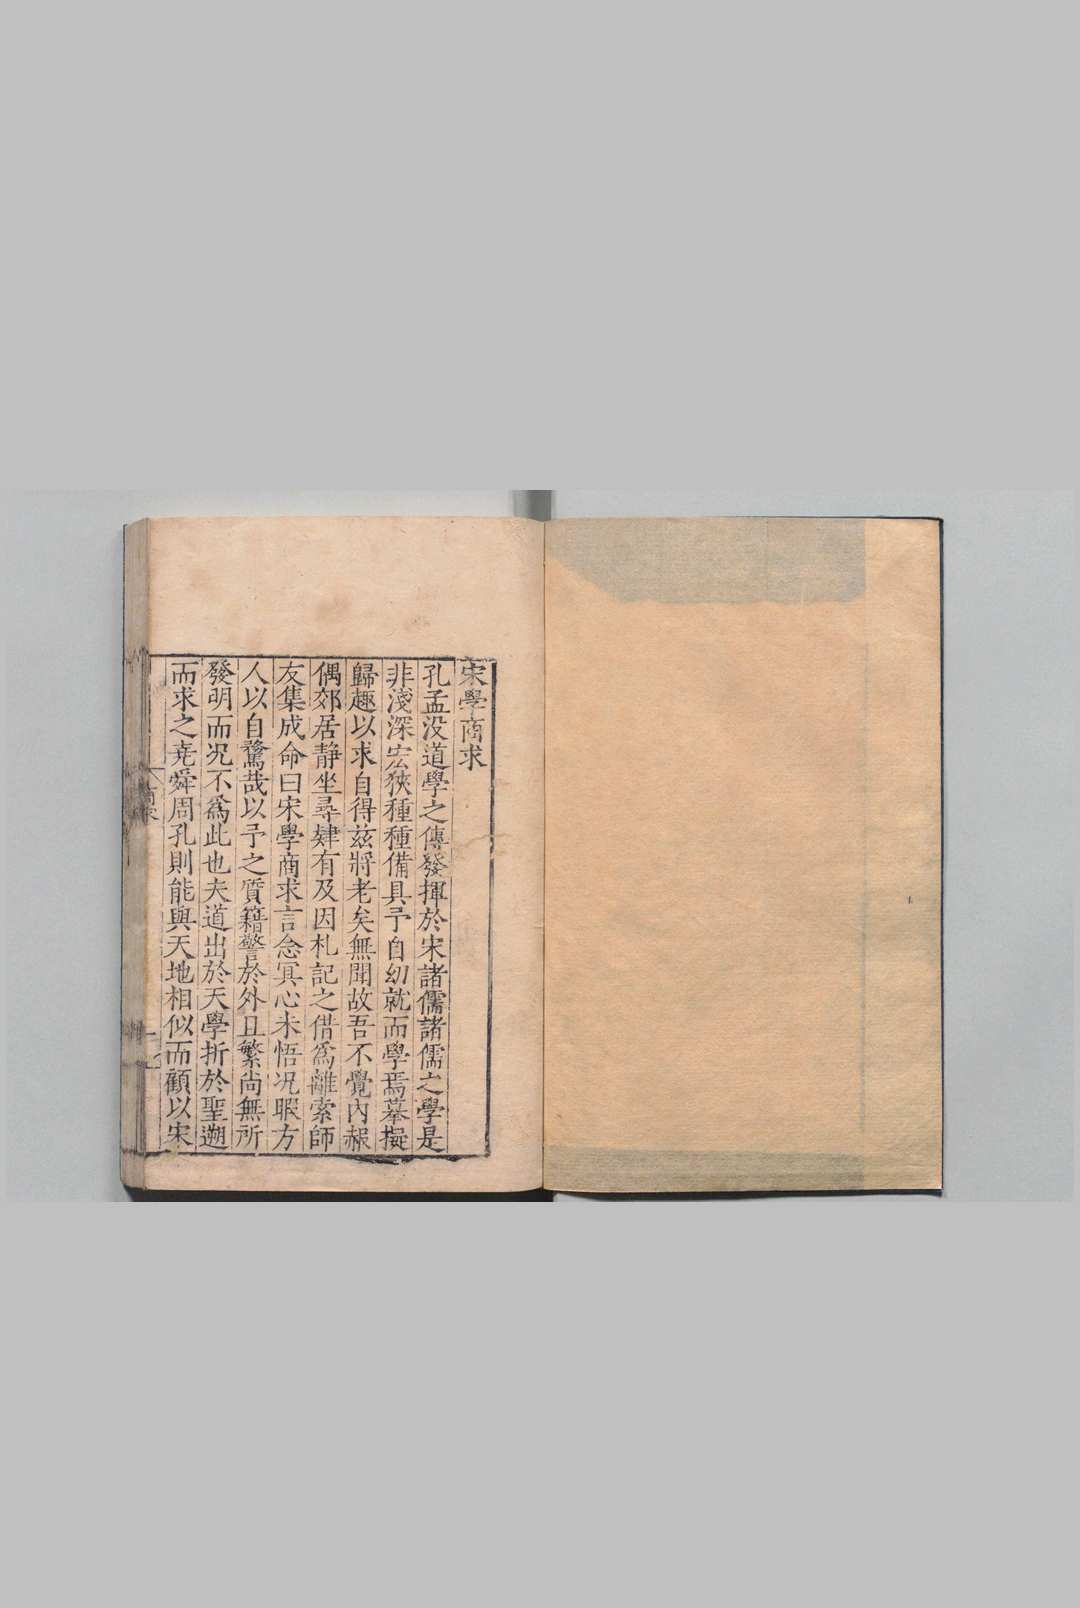 宋學商求
孔孟没道學之傳發揮於宋諸儒諸儒之學是
非淺深宏狹種種備具予自幼就而學焉摹擬
歸趣以求自得兹將老矣無聞故吾不覺内赧
偶郊居静坐尋肄有及因札記之借爲離索師
友集成命曰宋學商求言念冥心未悟况暇方
人以自騖哉以予之質籍警於外且繁尚無所
發明而况不爲此也夫道出於天學折於聖遡
而求之尭舜周孔則能與天地相似而顧以宋